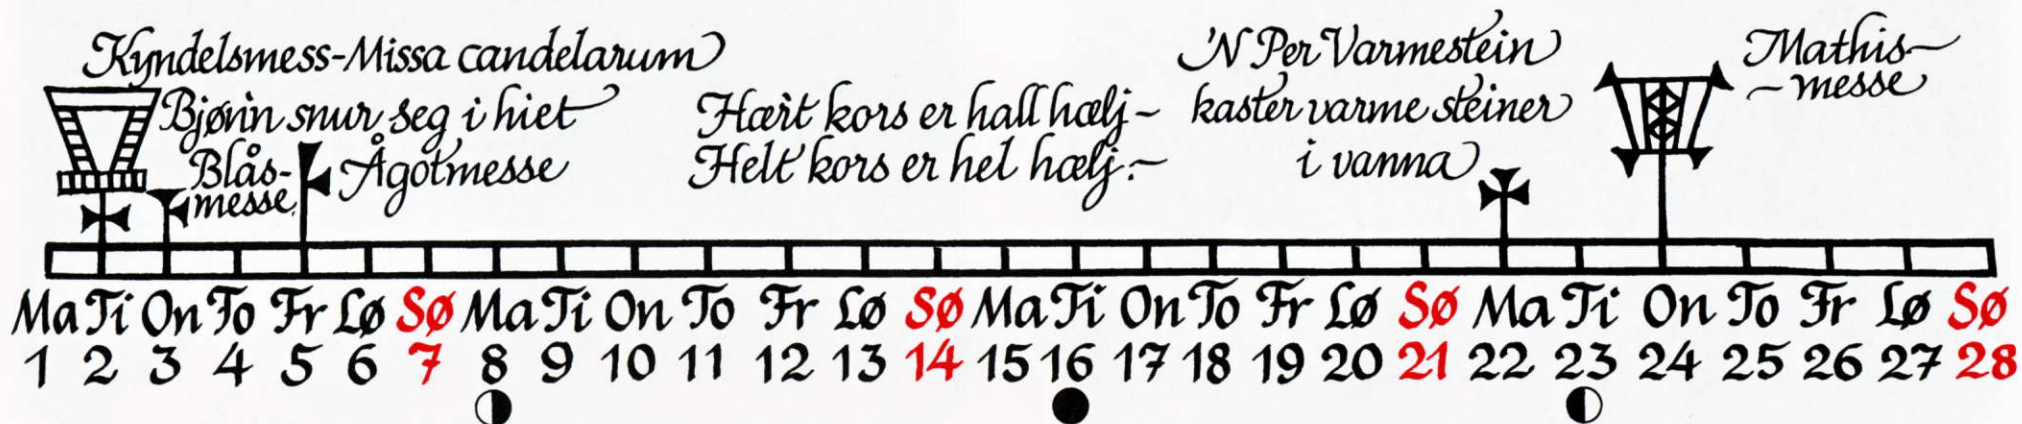 Kyndelsmess-Missa candelarum
Bjørin snur seg i hiet
Blås-
messe.
Ågotmesse
Hært kors er hall hælj-
Helt kors er hel hælj.-
'N Per Varmestein
kaster varme steiner
i vanna
Mathis-
-messe
Ma Ti On To Fr Lø Sø Ma Ti On To Fr Lø Sø Ma Ti On To Fr Lø Sø Ma Ti On To Fr Lø Sø
1 2 3 4 5 6 7 8 9 10 11 12 13 14 15 16 17 18 19 20 21 22 23 24 25 26 27 28